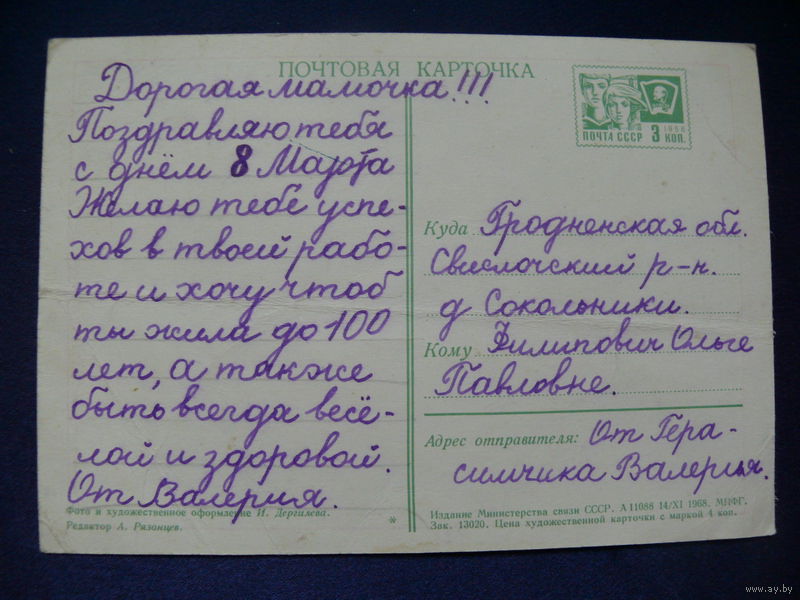 ПОЧТОВАЯ КАРТОЧКА
Дорогая мамочка!!!
Поздравляю тебя
с днём 8 Марта
Желаю тебе успе-
хов в твоей рабо-
те и хочу чтоб
ты жила до 100
лет, а также
быть всегда весё-
лой и здоровой.
От Валерия.
Фото и художественное оформление И. Дергилева.
Редактор А. Рязонцев.
*
1966
ПОЧТА СССР 3 КОП.
Куда Гродненская обл.
Свислочский р-н.
д Сокольники.
Кому Филипович Ольге
Павловне.
Адрес отправителя: От Гера-
симчика Валерия.
Издание Министерства связи СССР. А 11088 14/XI 1968. МПФГ.
Зак. 13020. Цена художественной карточки с маркой 4 коп.
www.ay.by